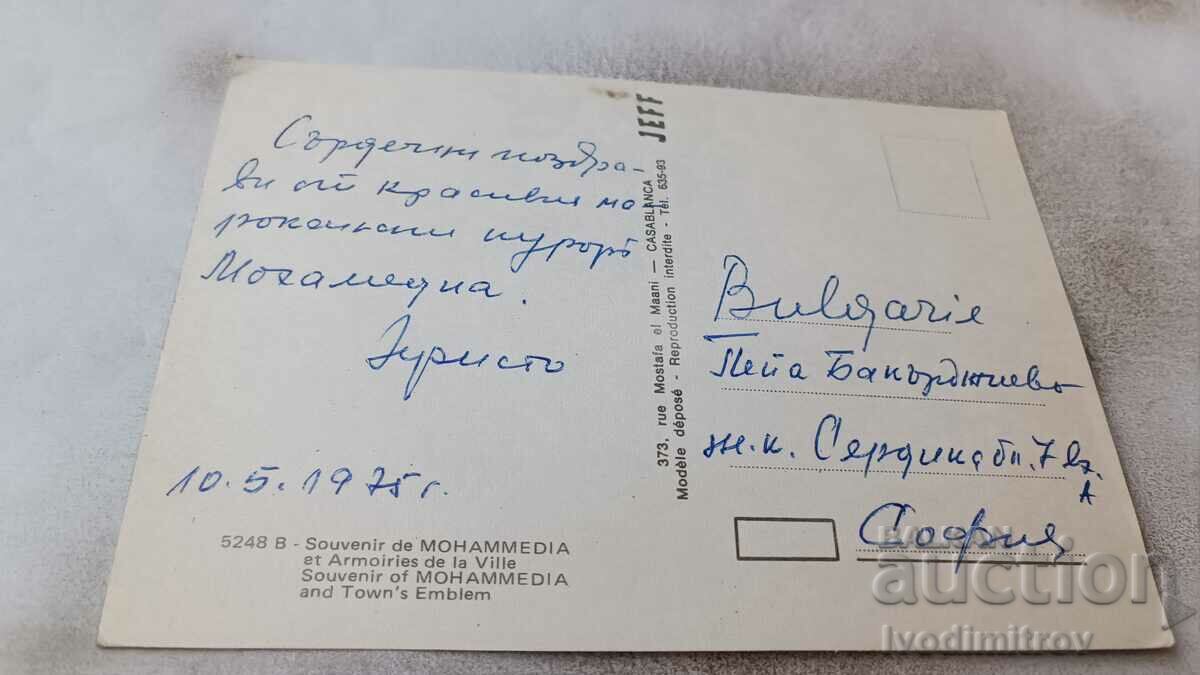 Сърдечни поздра-
ви от красивия ма-
рокански курорт
Мохамедиа.
Христо
10.5.1975 г.
5248 B - Souvenir de MOHAMMEDIA
et Armoiries de la Ville
Souvenir of MOHAMMEDIA
and Town's Emblem
JEFF
373, rue Mostafa el Maani — CASABLANCA
Modèle déposé - Reproduction interdite - Tél. 635-93
Bulgarie
Пепа Бакърджиева
ж.к. Сердика бл. 7 вх.
А
София
BALKAN
auction
Ivodimitrov